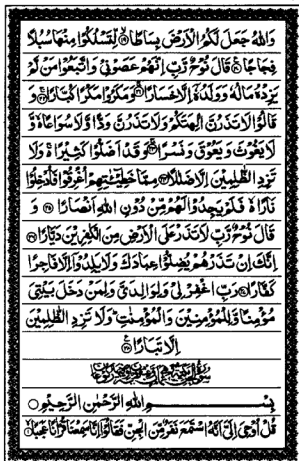 وَاللّٰهُ جَعَلَ لَكُمُ الْاَرْضَ بِسَاطًا ۙ﴿۱۹﴾ لِّتَسْلُكُوْا مِنْهَا سُبُلًا
فِجَاجًا ﴿۲۰﴾ قَالَ نُوْحٌ رَّبِّ اِنَّهُمْ عَصَوْنِیْ وَاتَّبَعُوْا مَنْ لَّمْ
یَزِدْهُ مَالُهٗ وَوَلَدُهٗۤ اِلَّا خَسَارًا ﴿۲۱﴾ وَمَكَرُوْا مَكْرًا كُبَّارًا ﴿۲۲﴾ وَ
قَالُوْا لَا تَذَرُنَّ اٰلِهَتَكُمْ وَلَا تَذَرُنَّ وَدًّا وَّلَا سُوَاعًا ۙ۬ وَّ
لَا یَغُوْثَ وَیَعُوْقَ وَنَسْرًا ﴿۲۳﴾ وَقَدْ اَضَلُّوْا كَثِیْرًا ۚ۬ وَلَا
تَزِدِ الظّٰلِمِیْنَ اِلَّا ضَلٰلًا ﴿۲۴﴾ مِمَّا خَطِیْٓـٰٔتِهِمْ اُغْرِقُوْا فَاُدْخِلُوْا
نَارًا ۙ۬ فَلَمْ یَجِدُوْا لَهُمْ مِّنْ دُوْنِ اللّٰهِ اَنْصَارًا ﴿۲۵﴾ وَ
قَالَ نُوْحٌ رَّبِّ لَا تَذَرْ عَلَی الْاَرْضِ مِنَ الْكٰفِرِیْنَ دَیَّارًا ﴿۲۶﴾
اِنَّكَ اِنْ تَذَرْهُمْ یُضِلُّوْا عِبَادَكَ وَلَا یَلِدُوْۤا اِلَّا فَاجِرًا
كَفَّارًا ﴿۲۷﴾ رَبِّ اغْفِرْ لِیْ وَلِوَالِدَیَّ وَلِمَنْ دَخَلَ بَیْتِیَ
مُؤْمِنًا وَّلِلْمُؤْمِنِیْنَ وَالْمُؤْمِنٰتِ ؕ وَلَا تَزِدِ الظّٰلِمِیْنَ
اِلَّا تَبَارًا ﴿۲۸﴾
بِسْمِ اللّٰهِ الرَّحْمٰنِ الرَّحِیْمِ
قُلْ اُوْحِیَ اِلَیَّ اَنَّهُ اسْتَمَعَ نَفَرٌ مِّنَ الْجِنِّ فَقَالُوْۤا اِنَّا سَمِعْنَا قُرْاٰنًا عَجَبًا ۙ﴿۱﴾